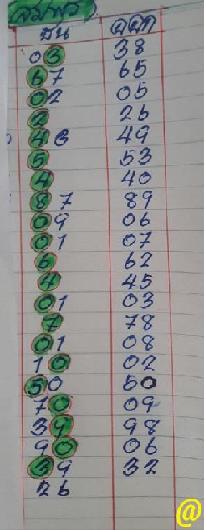 ชมพู่
ลน ออก
03 38
67 65
02 05
2 26
43 49
5 53
4 40
87 89
09 06
01 07
6 62
4 45
01 03
7 78
01 08
10 02
50 50
70 09
39 98
90 06
39 32
26
@